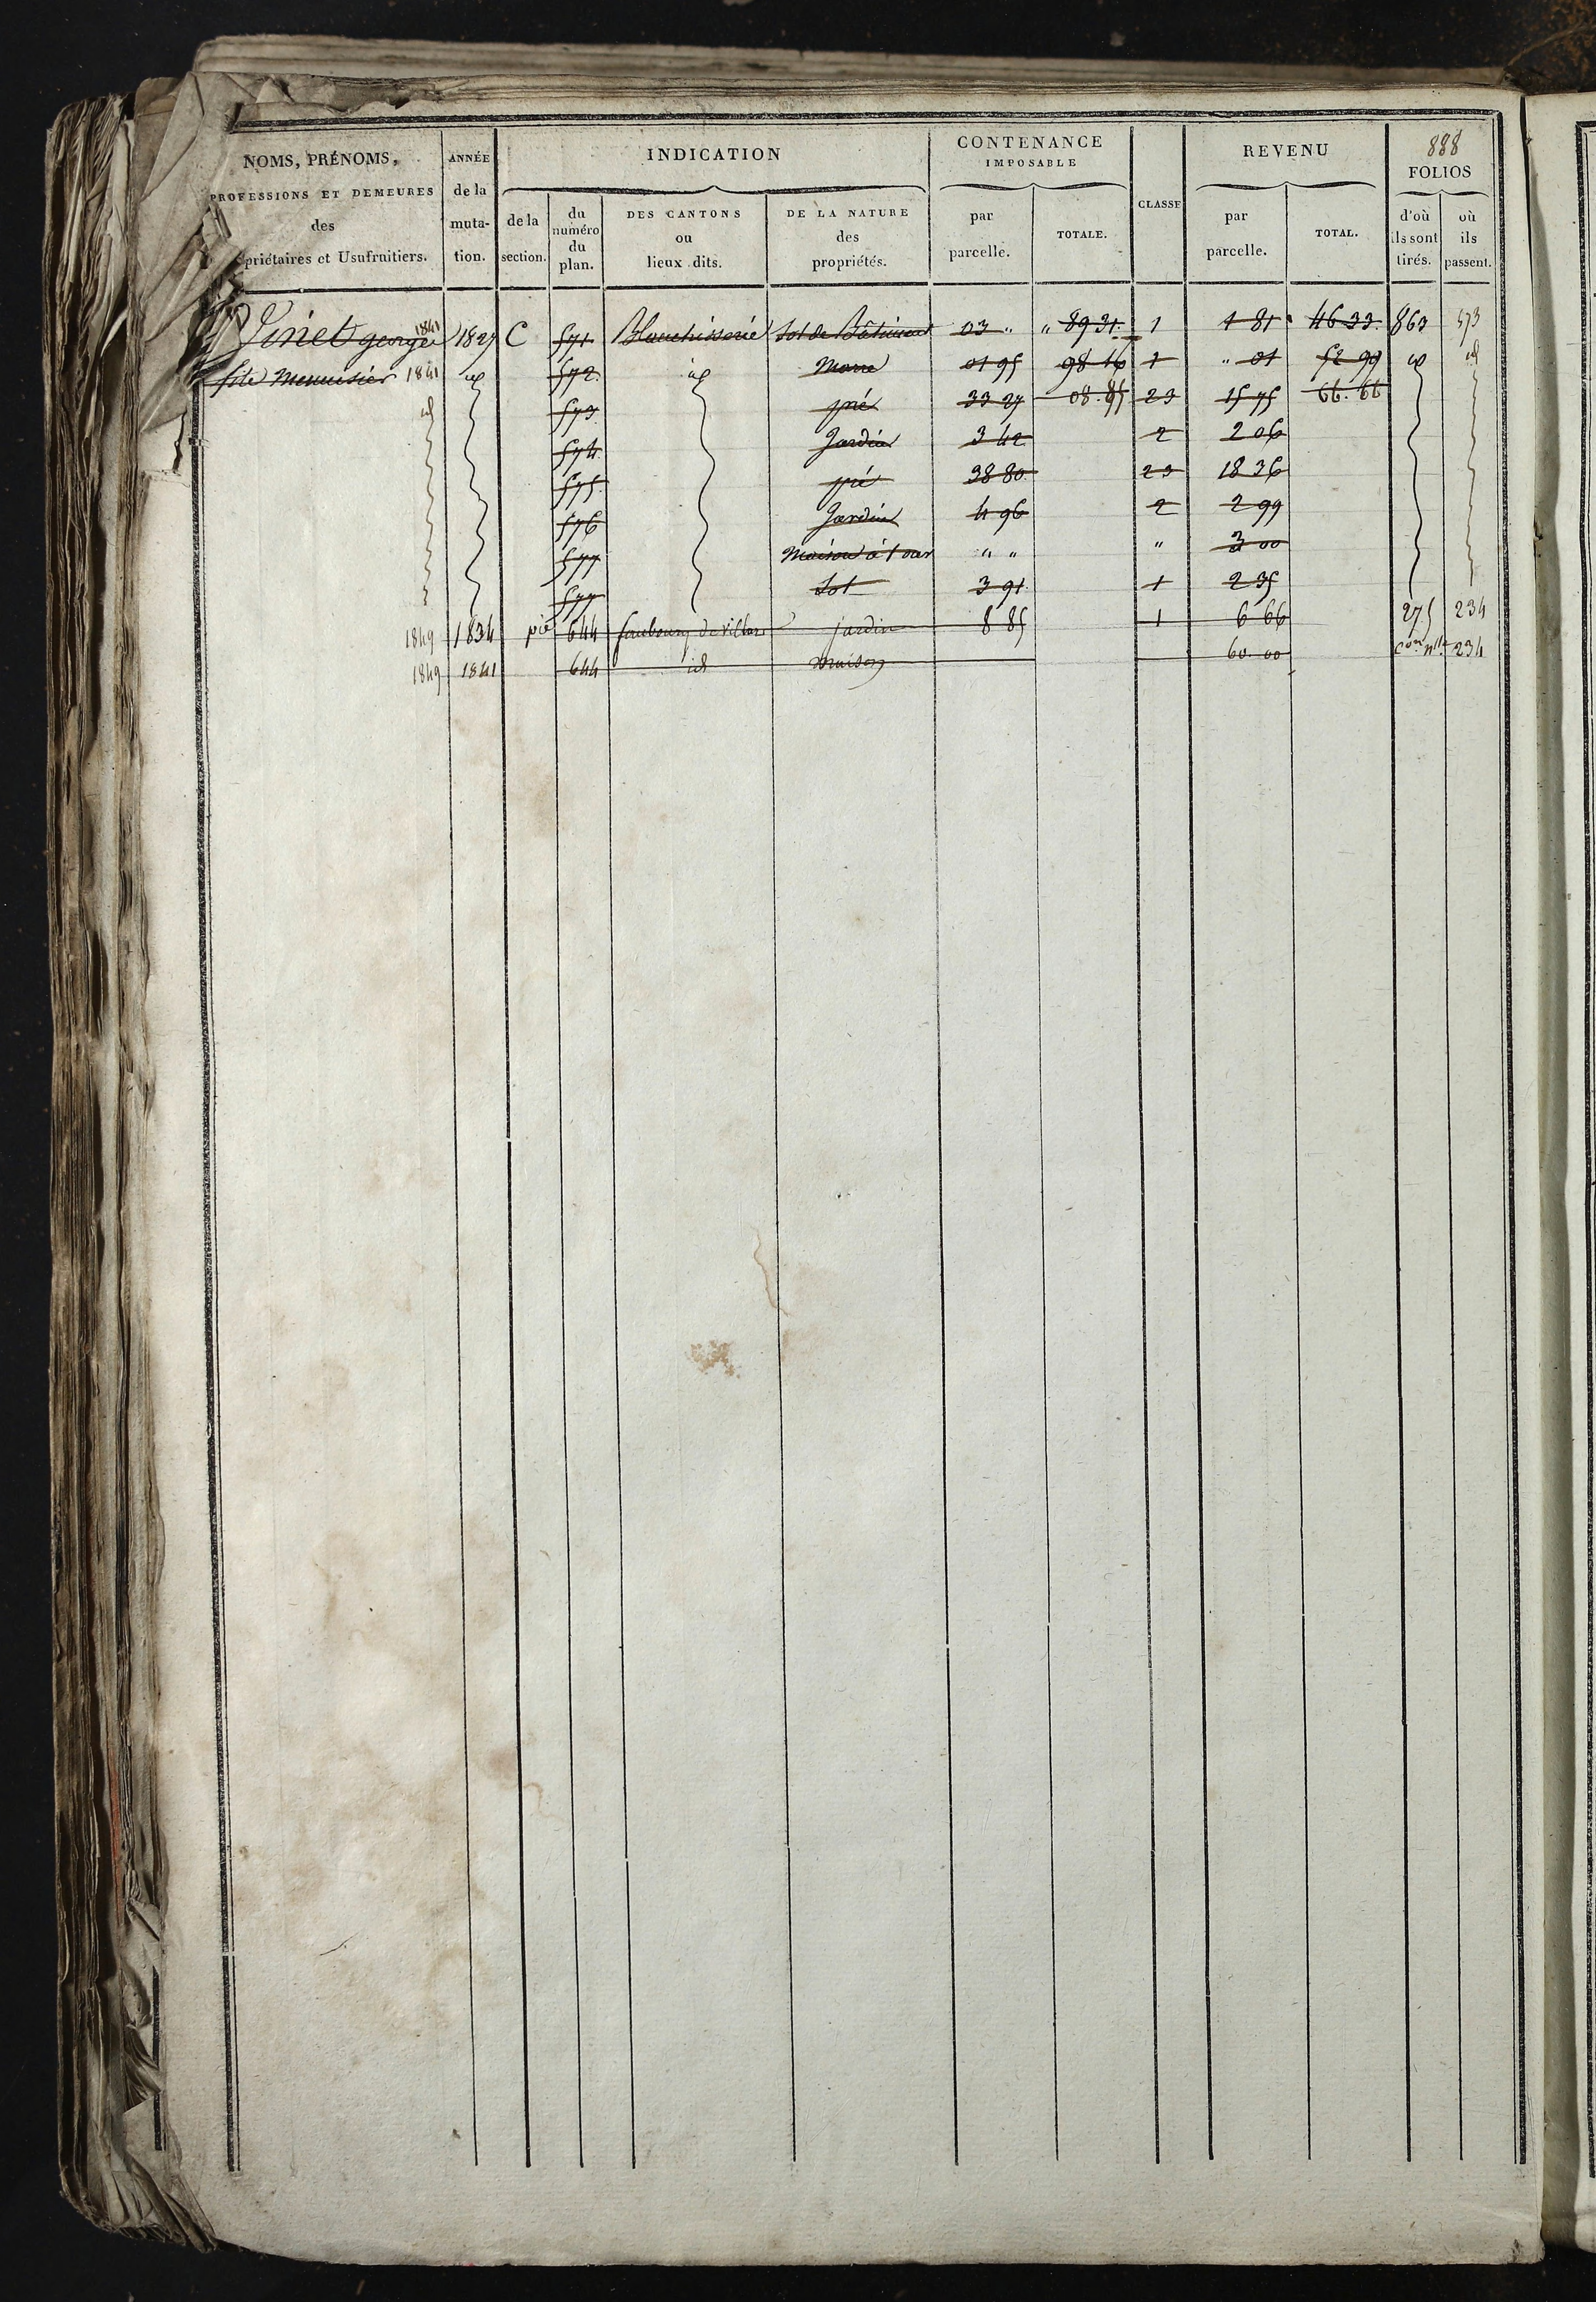 888
NOMS, PRÉNOMS, ANNÉE INDICATION CONTENANCE IMPOSABLE CLASSE REVENU FOLIOS
PROFESSIONS ET DEMEURES de la
des muta-
priétaires et Usufruitiers. tion.
de la section. du numéro du plan. DES CANTONS ou lieux dits. DE LA NATURE des propriétés. par parcelle. TOTALE. par parcelle. TOTAL. d'où ils sont tirés. où ils passent.
Vinet georges 1841 1827 C 571 Blanchisserie Sol de Bâtiment 03 " " 89 31 1 1 81 46 33 863 573
fils Menuisier 1841 id 572 id Marre 01 95 98 16 1 " 01 52 99 id id
id 573 pré 33 27 08.85 23 15 75 66.66
574 Jardin 3 42 2 2 06
575 pré 38 80 23 18 36
576 Jardin 4 96 2 2 99
577 Maison à 1 ouv " " " 3 00
577 Sol 3 91 1 2 35
1849 1834 pie 644 faubourg de villars jardin 8 85 1 6 66 275 234
1849 1841 644 id maison 60.00 con nlle 234